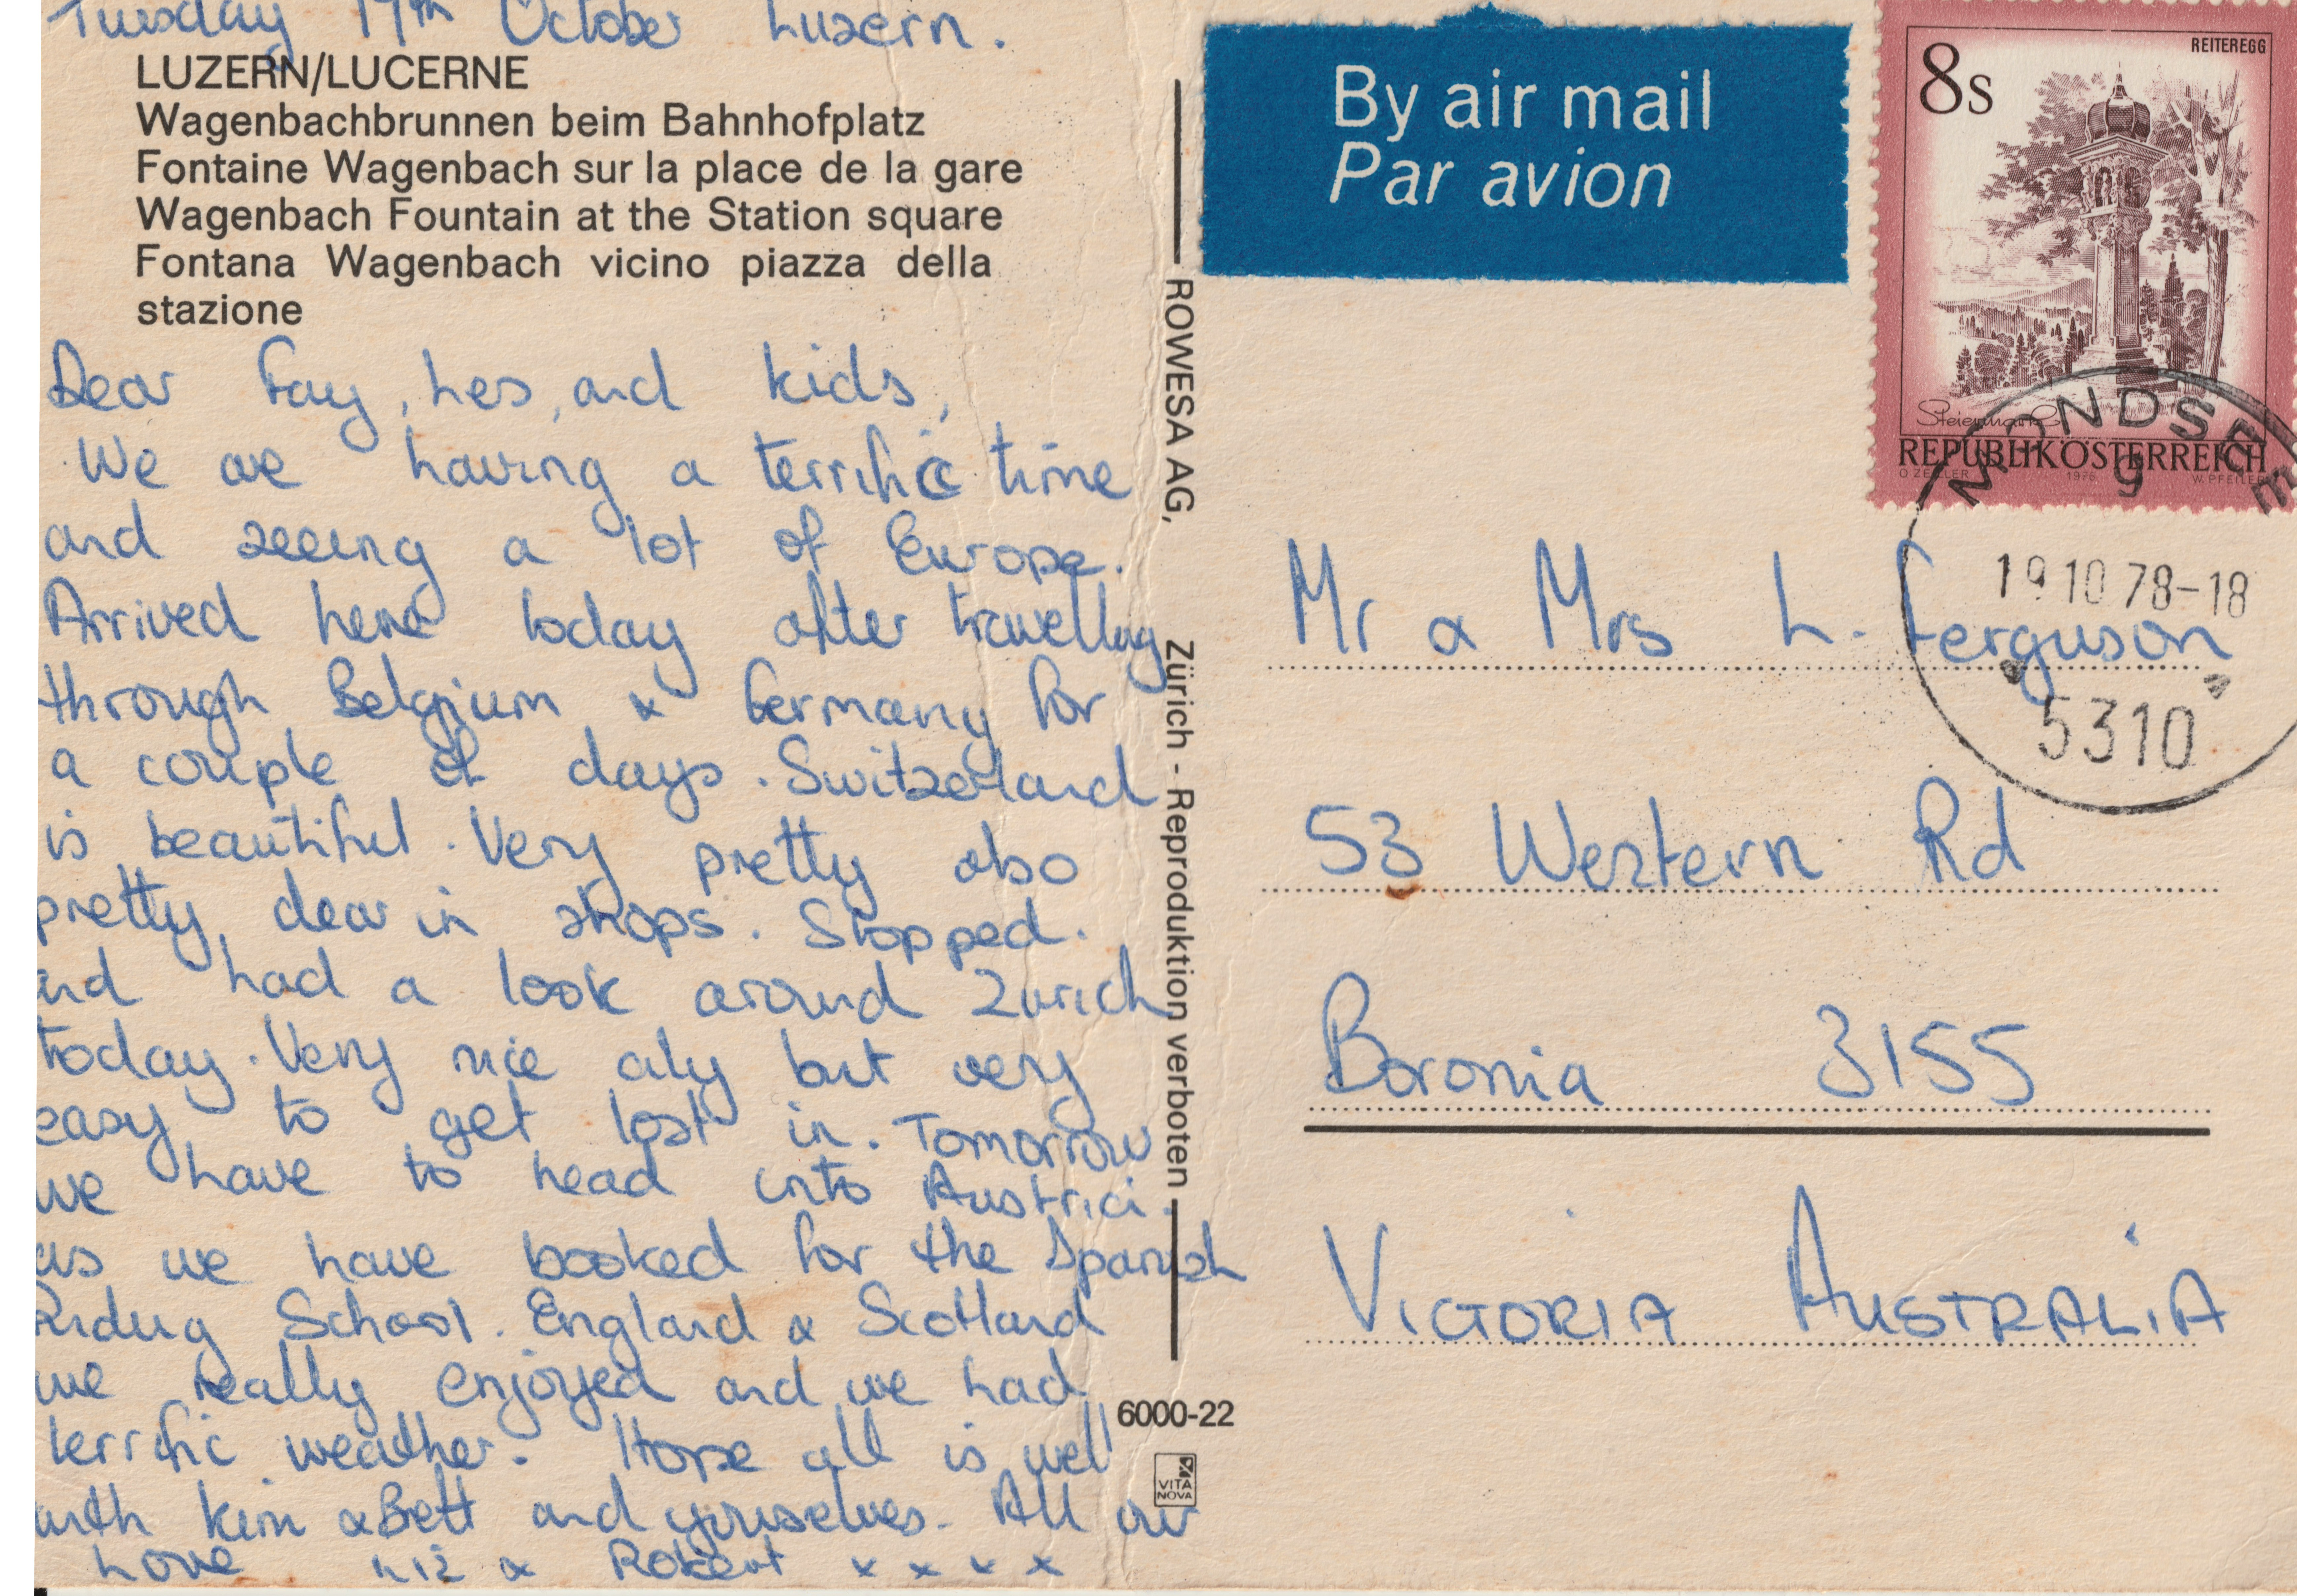 Tuesday 17th October Luzern.
LUZERN/LUCERNE
Wagenbachbrunnen beim Bahnhofplatz
Fontaine Wagenbach sur la place de la gare
Wagenbach Fountain at the Station square
Fontana Wagenbach vicino piazza della
stazione
Dear Fay, Les, and kids,
We are having a terrific time
and seeing a lot of Europe.
Arrived here today after travelling
through Belgium & Germany for
a couple of days. Switzerland
is beautiful. Very pretty also
pretty dear in shops. Stopped.
and had a look around Zurich
today. Very nice city but very
easy to get lost in. Tomorrow
we have to head into Austria.
as we have booked for the Spanish
Riding School. England & Scotland
we really enjoyed and we had
terrific weather. Hope all is well
with Kim & Bett and yourselves. All our
Love Liz & Robert x x x x
ROWESA AG, Zürich - Reproduktion verboten
6000-22
VITA
NOVA
By air mail
Par avion
REITEREGG
8s
Steiermark
REPUBLIK ÖSTERREICH
O ZEILLER 1976 W. PFEILER
MONDSEE
9
19 10 78-18
5310
Mr & Mrs L. Ferguson
53 Western Rd
Boronia 3155
VICTORIA AUSTRALIA